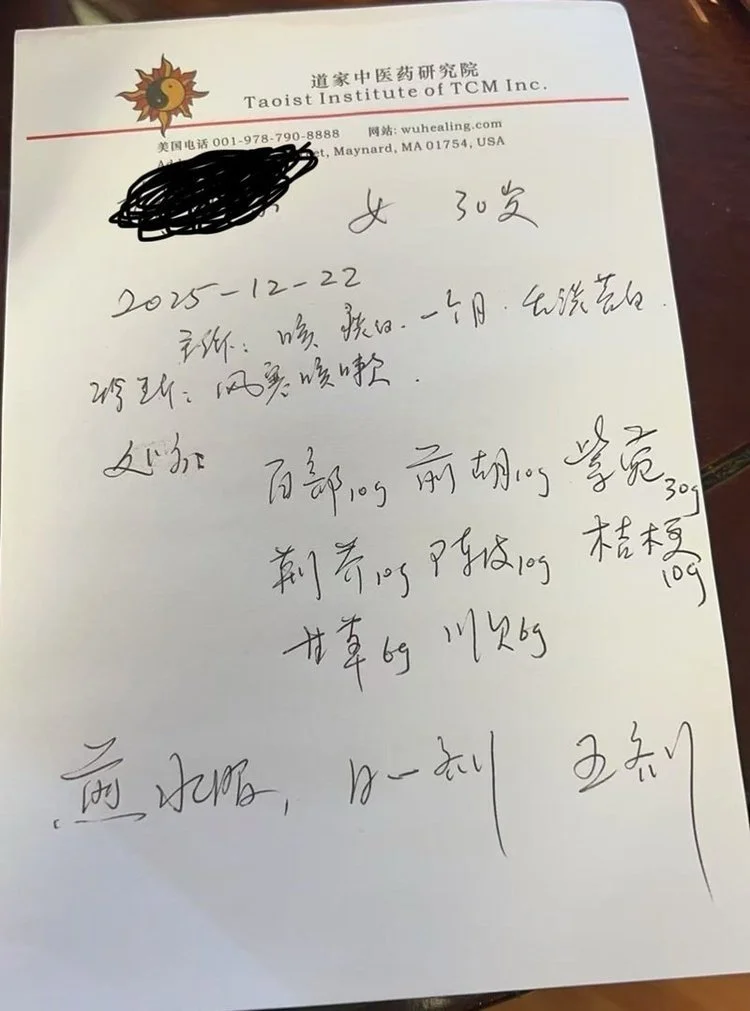 道家中医药研究院
Taoist Institute of TCM Inc.
美国电话 001-978-790-8888 网站: wuhealing.com
et, Maynard, MA 01754, USA
女 30岁
2025-12-22
主诉: 咳 痰白. 一个月. 舌淡苔白.
诊断: 风寒咳嗽.
百部10g 前胡10g 紫菀30g
荆芥10g 陈皮10g 桔梗10g
甘草6g 川贝6g
煎水服, 日一剂 五剂